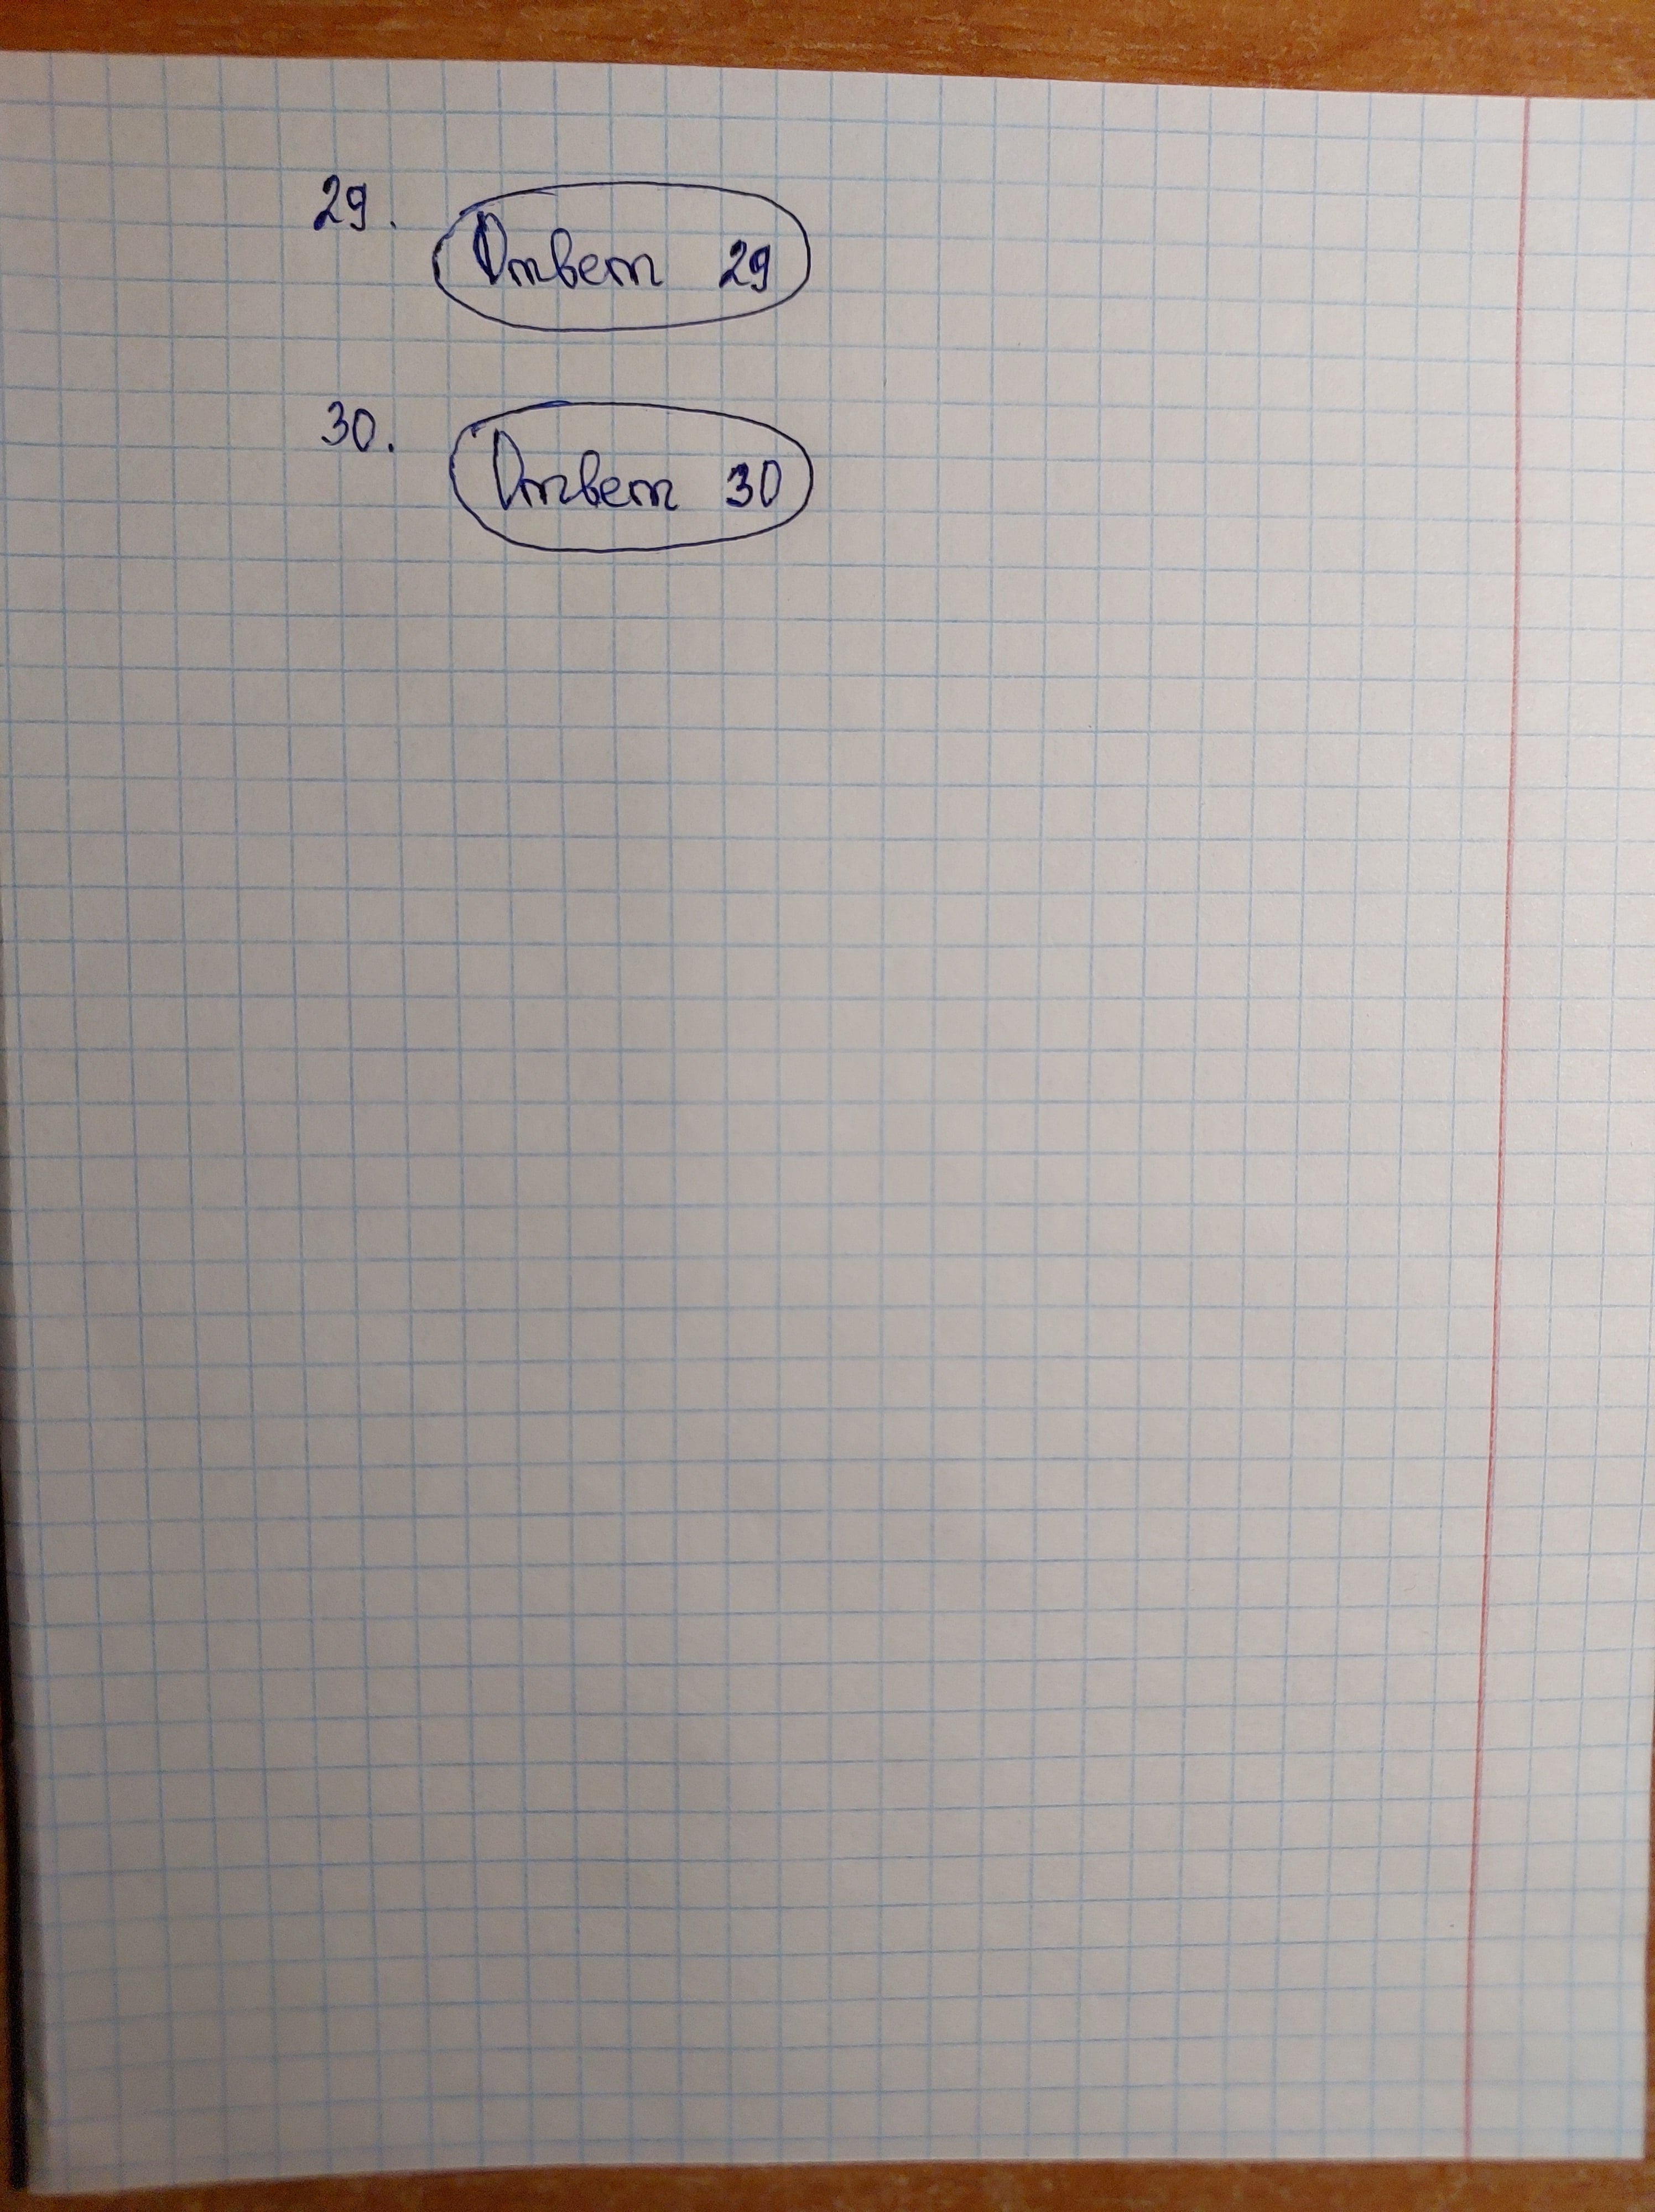 29. Ответ 29
30. Ответ 30